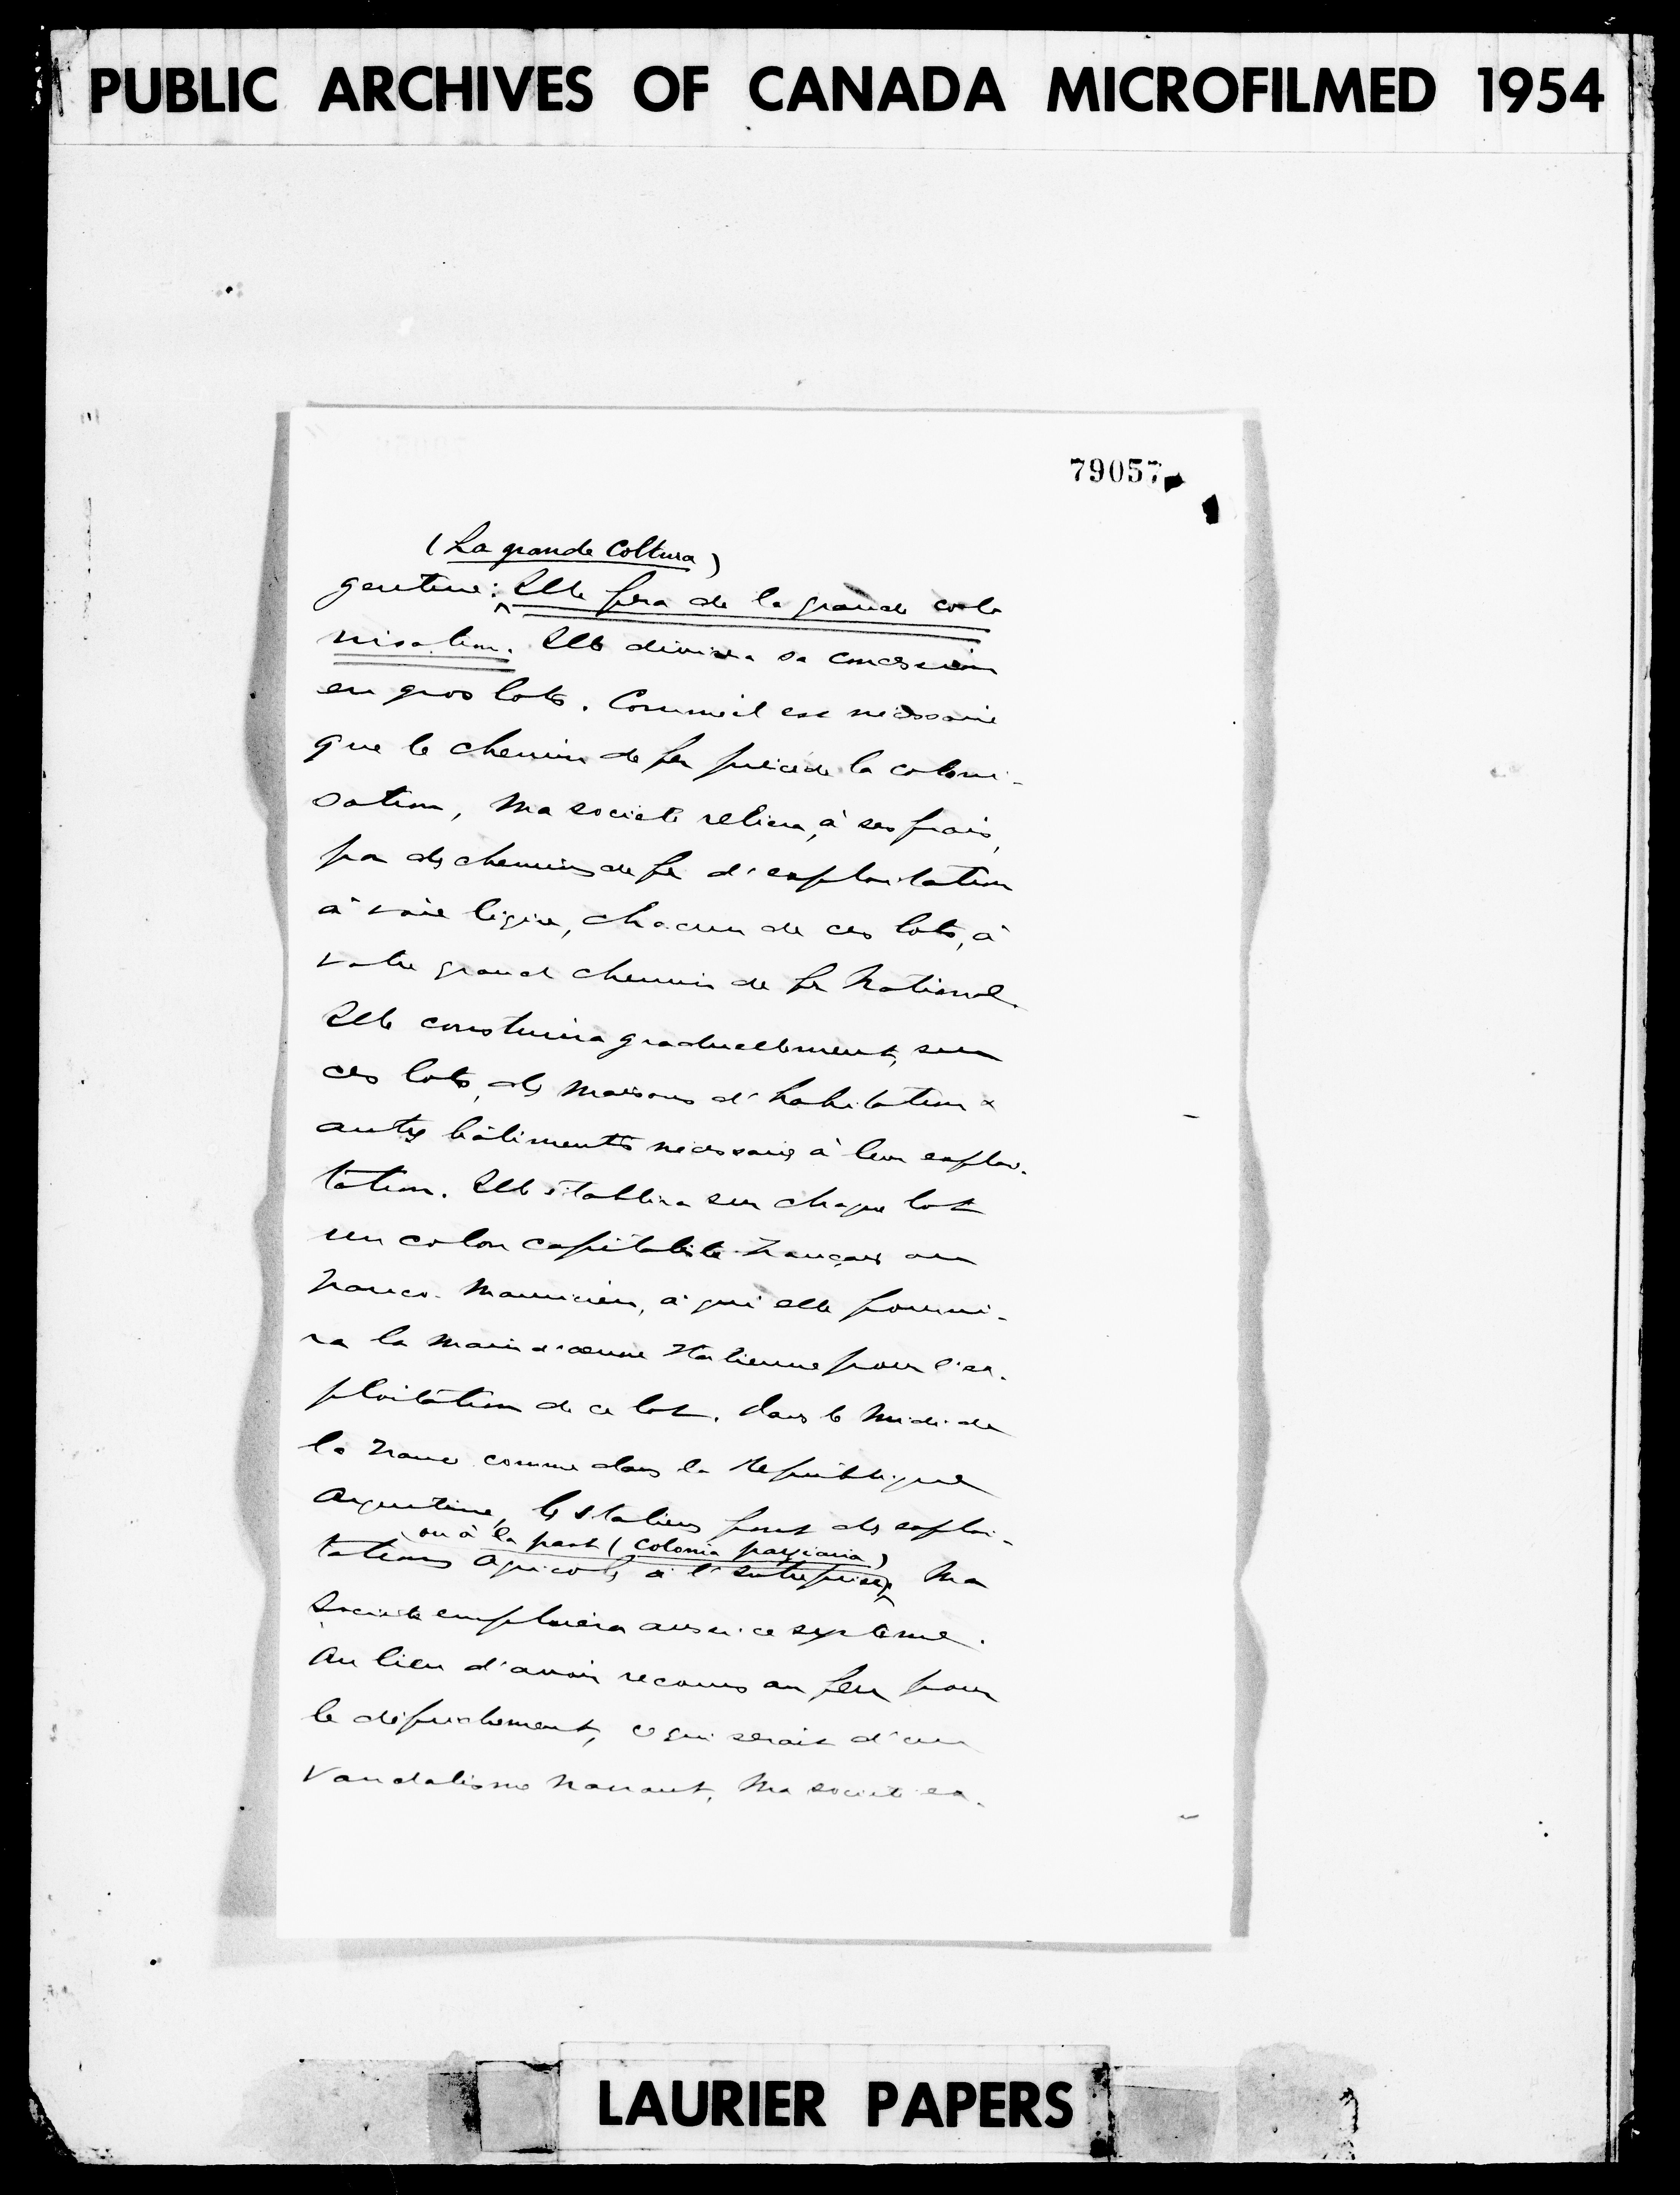 PUBLIC ARCHIVES OF CANADA MICROFILMED 1954
79057
(La grande Coltura)
gentine: Elle fera de la grande colo
nisation. Elle divisera sa concession
en gros lots. Comme il est nécessaire
que le chemin de fer précède la coloni-
sation, ma société reliera, à ses frais,
par des chemins de fer d'exploitation
à voie légère, chacun de ces lots, à
votre grand chemin de fer National.
Elle construira graduellement, sur
ces lots, des maisons d'habitation &
autres bâtiments nécessaires à leur exploi-
tation. Elle établira sur chaque lot
un colon capitaliste français ou
franco-Mauricien, à qui elle fourni-
ra la main d'œuvre Italienne pour l'ex-
ploitation de ce lot. Dans le Midi de
la France comme dans la République
Argentine, les Italiens font des exploi-
ou à la part (Colonia parziaria)
tations agricoles à l'entreprise. Ma
Société emploiera aussi ce système.
Au lieu d'avoir recours au feu pour
le défrichement, ce qui serait d'un
vandalisme navrant, ma société ex-
LAURIER PAPERS